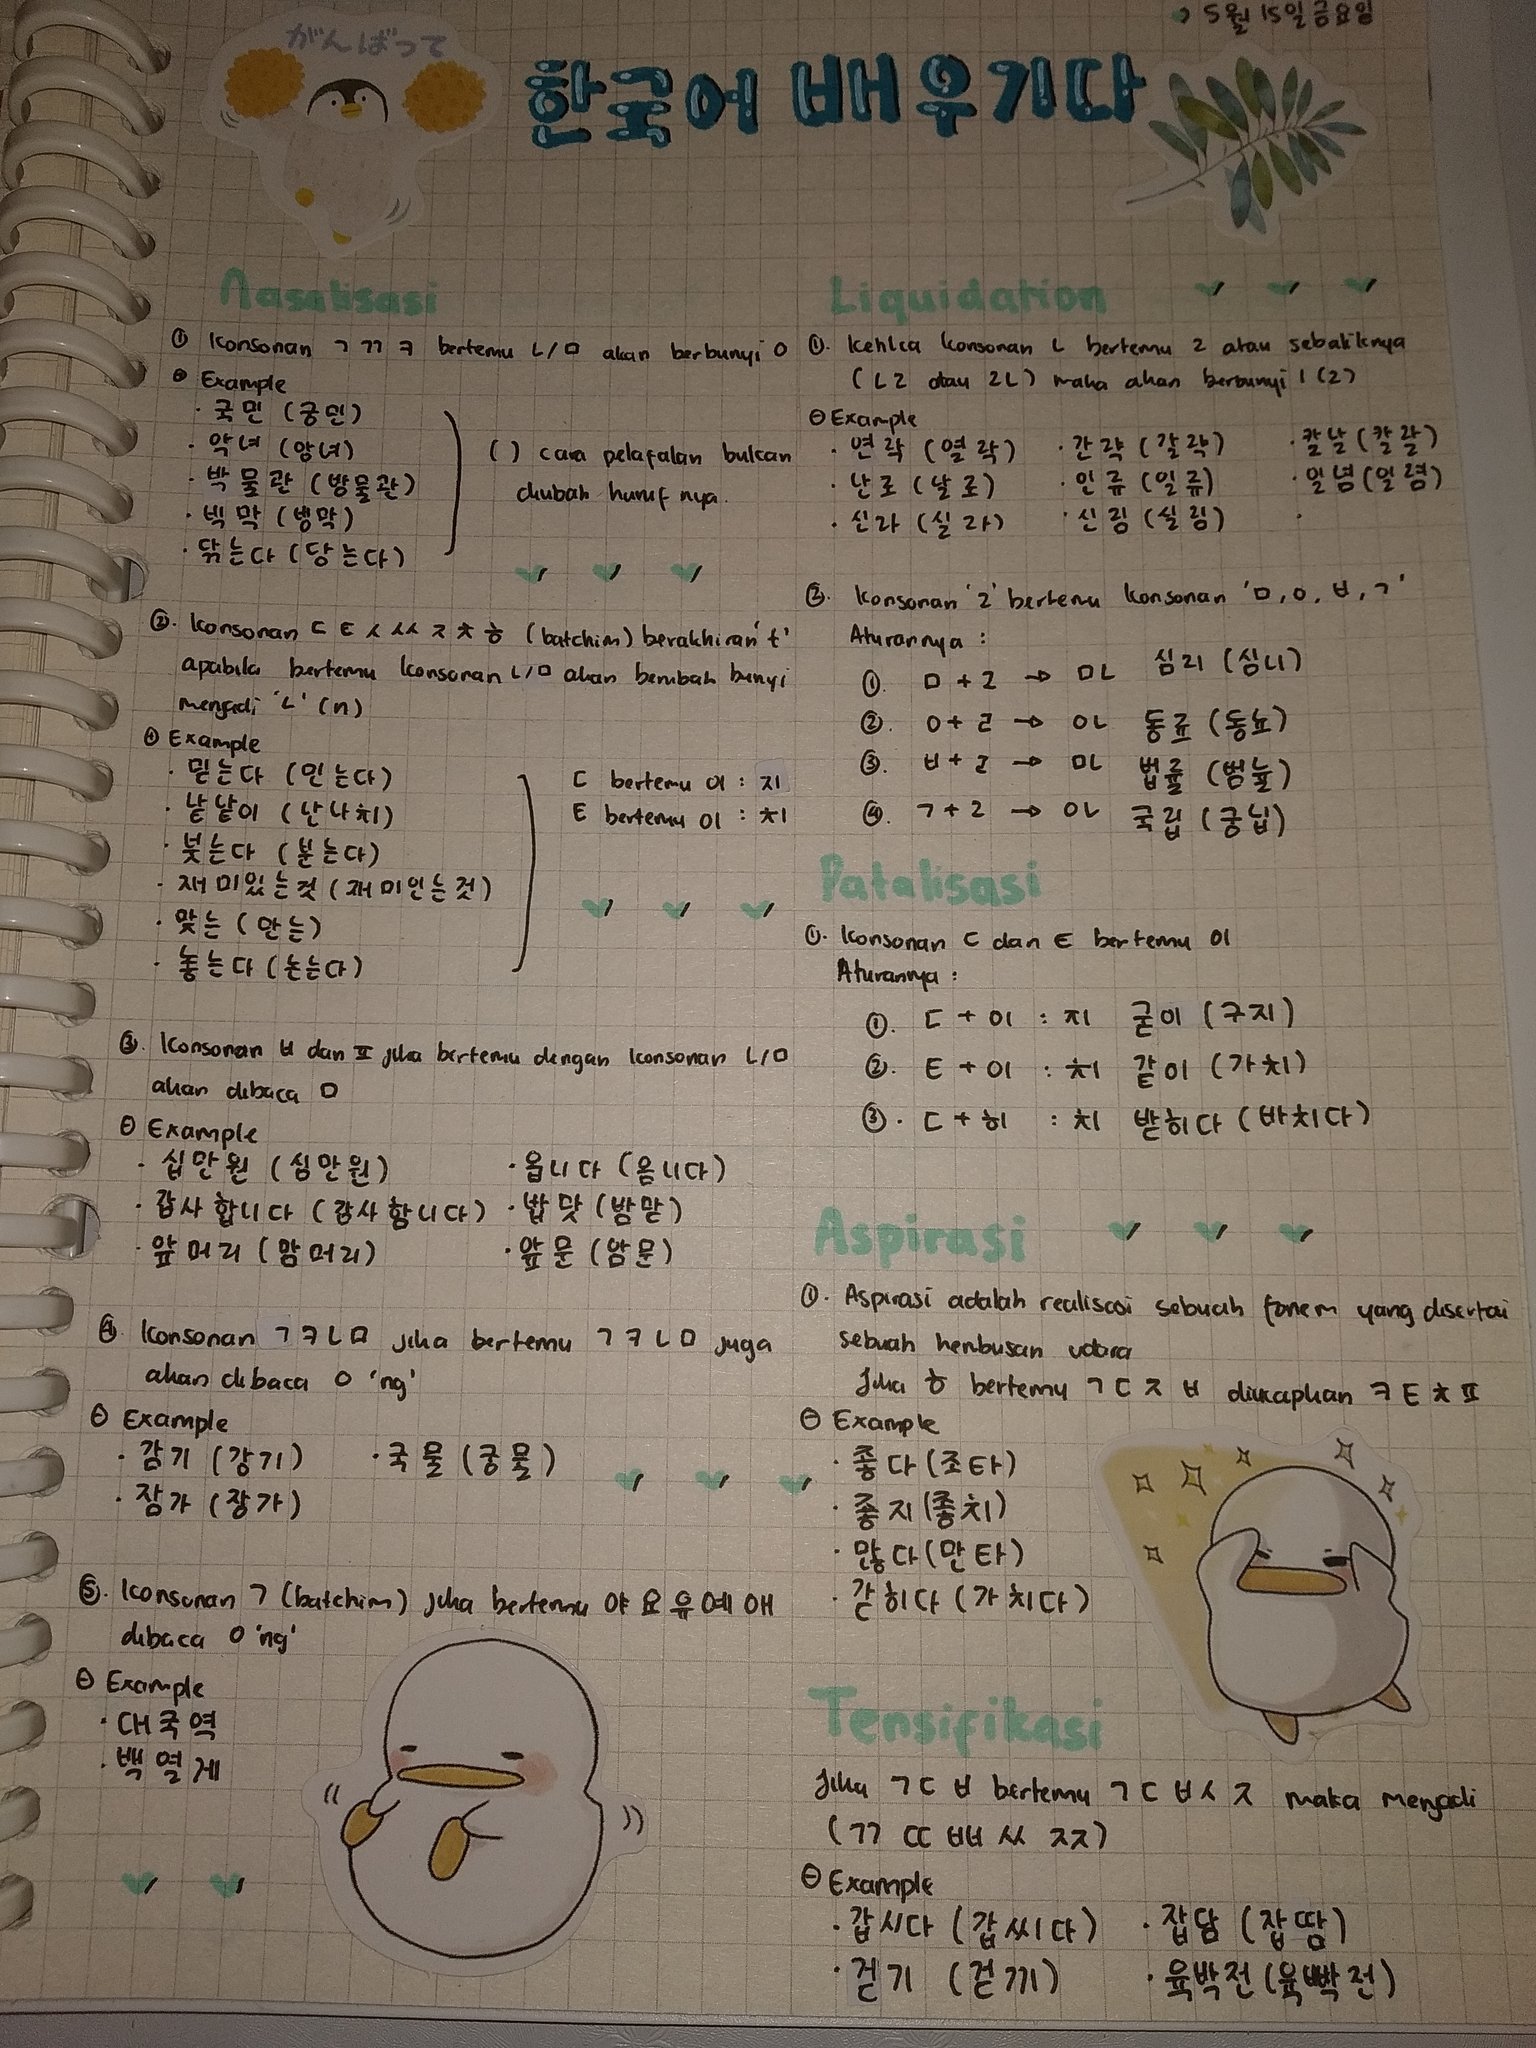 5월 15일 금요일
がんばって
한국어 배우기다
Nasalisasi
① Konsonan ㄱ ㄲ ㅋ bertemu ㄴ/ㅁ akan berbunyi ㅇ
Example
· 국민 (궁민)
· 악녀 (앙녀)
· 박물관 (방물관)
· 벽막 (병막)
· 닦는다 (당는다)
( ) cara pelafalan bukan
diubah huruf nya.
②. Konsonan ㄷ ㅌ ㅅ ㅆ ㅈ ㅊ ㅎ (batchim) berakhiran 't'
apabila bertemu konsonan ㄴ/ㅁ akan berubah bunyi
menjadi 'ㄴ' (n)
Example
· 믿는다 (민는다)
· 낱낱이 (난나치)
· 붖는다 (분는다)
· 재미있는것 (재미인는것)
· 맞는 (만는)
· 놓는다 (논는다)
ㄷ bertemu 이 : 지
ㅌ bertemu 이 : 치
③. Konsonan ㅂ dan ㅍ jika bertemu dengan konsonan ㄴ/ㅁ
akan dibaca ㅁ
Example
· 십만원 (심만원) · 옵니다 (옴니다)
· 감사합니다 (감사함니다) · 밥맛 (밤맏)
· 앞머리 (맘머리) · 앞문 (암문)
④ Konsonan ㄱ ㅋ ㄴ ㅁ jika bertemu ㄱ ㅋ ㄴ ㅁ juga
akan dibaca ㅇ 'ng'
Example
· 감기 (강기) · 국물 (궁물)
· 잠가 (장가)
⑤. Konsonan ㄱ (batchim) jika bertemu 야 요 유 예 애
dibaca ㅇ 'ng'
Example
· 대국역
· 백열게
Liquidation
①. Ketika konsonan ㄴ bertemu ㄹ atau sebaliknya
(ㄴㄹ atau ㄹㄴ) maka akan berbunyi l (ㄹ)
Example
· 연락 (열락) · 간략 (갈략) · 칼날 (칼랄)
· 난로 (날로) · 인류 (일류) · 일념 (일렴)
· 신라 (실라) · 신림 (실림) ·
②. Konsonan 'ㄹ' bertemu konsonan 'ㅁ, ㅇ, ㅂ, ㄱ'
Aturannya :
①. ㅁ + ㄹ → ㅁㄴ 심리 (심니)
②. ㅇ + ㄹ → ㅇㄴ 동료 (동뇨)
③. ㅂ + ㄹ → ㅁㄴ 법률 (범뉼)
④. ㄱ + ㄹ → ㅇㄴ 국립 (궁닙)
Patalisasi
①. Konsonan ㄷ dan ㅌ bertemu 이
Aturannya :
①. ㄷ + 이 : 지 굳이 (구지)
②. ㅌ + 이 : 치 같이 (가치)
③. ㄷ + 히 : 치 받히다 (바치다)
Aspirasi
①. Aspirasi adalah realisasi sebuah fonem yang disertai
sebuah henbusan udara
Jika ㅎ bertemu ㄱ ㄷ ㅈ ㅂ diucapkan ㅋ ㅌ ㅊ ㅍ
Example
· 좋다 (조타)
· 좋지 (좋치)
· 많다 (만타)
· 갇히다 (가치다)
Tensifikasi
Jika ㄱ ㄷ ㅂ bertemu ㄱ ㄷ ㅂ ㅅ ㅈ maka menjadi
(ㄲ ㄸ ㅃ ㅆ ㅉ)
Example
· 갑시다 (갑씨다) · 잡담 (잡땀)
· 걷기 (걷끼) · 육박전 (육빡전)